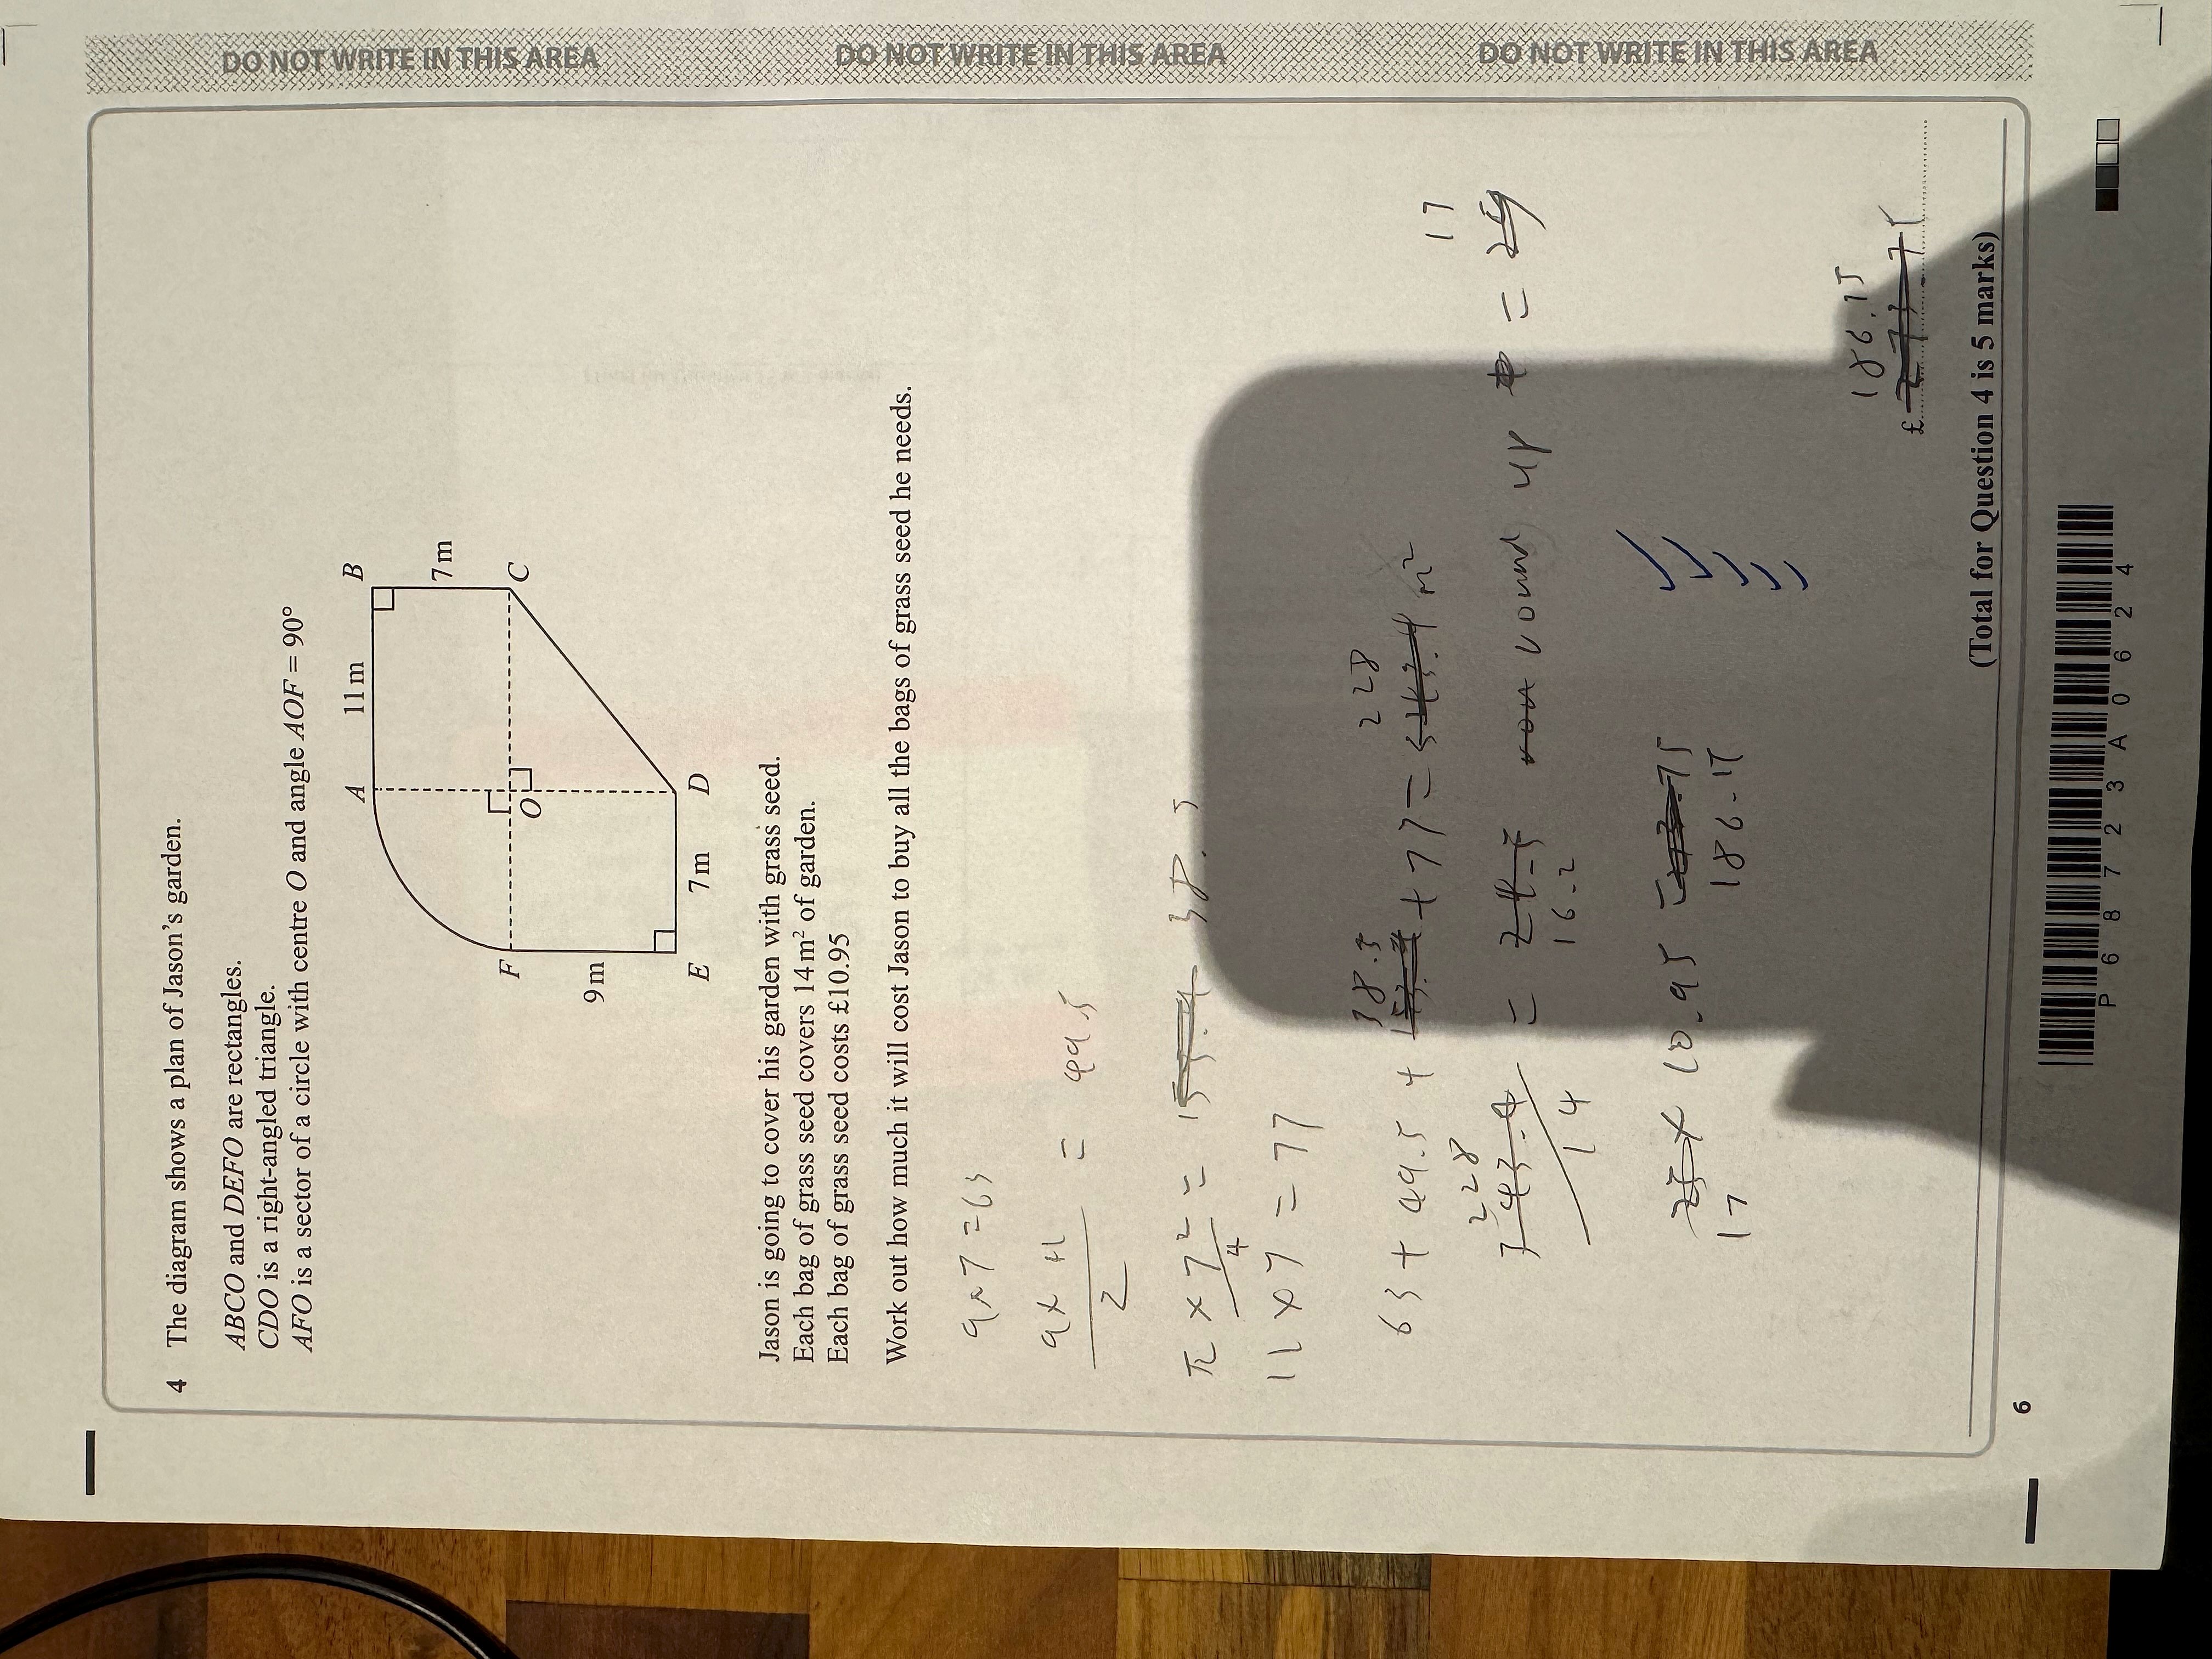 DO NOT WRITE IN THIS AREA
DO NOT WRITE IN THIS AREA
DO NOT WRITE IN THIS AREA
4 The diagram shows a plan of Jason's garden.
ABCO and DEFO are rectangles.
CDO is a right-angled triangle.
AFO is a sector of a circle with centre O and angle AOF = 90°
A 11 m B
7 m
F O C
9 m
E 7 m D
Jason is going to cover his garden with grass seed.
Each bag of grass seed covers 14 m² of garden.
Each bag of grass seed costs £10.95
Work out how much it will cost Jason to buy all the bags of grass seed he needs.
9×7=63
9×11
2
= 49.5
π × 7²
4
= 38.5
11 × 7 = 77
63 + 49.5 + 38.5 + 77 = 228 m²
228
14
= 16.2 round up = 17
17 × 10.95 = 186.15
£ 186.15
(Total for Question 4 is 5 marks)
6
P 6 8 7 2 3 A 0 6 2 4